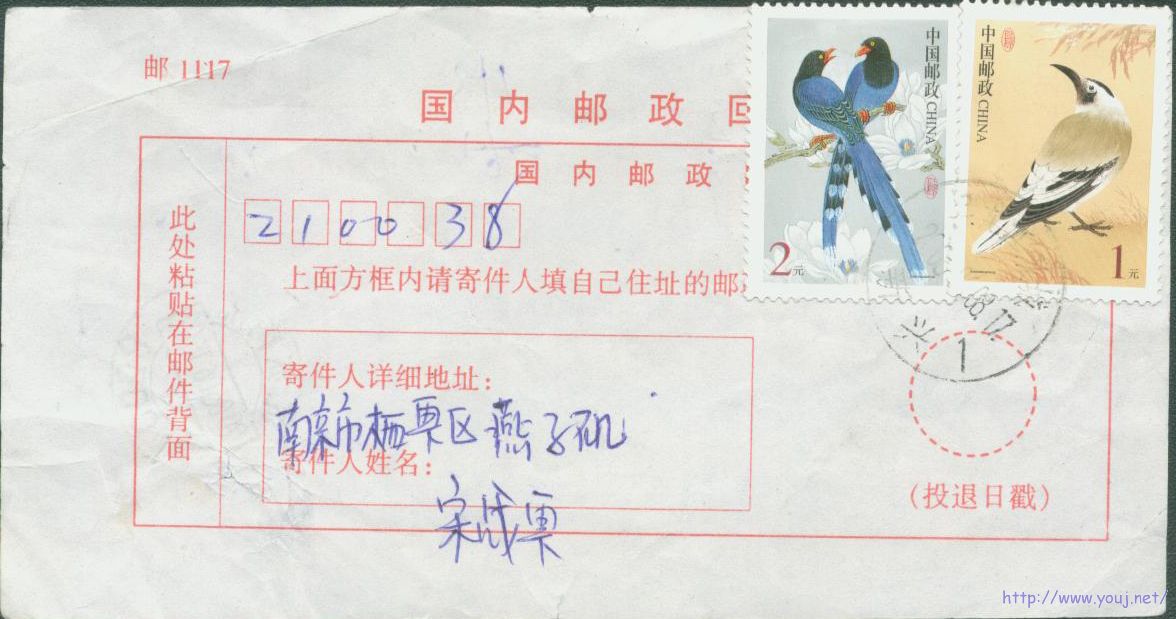 邮 1117
国内邮政回
国内邮政
210038
上面方框内请寄件人填自己住址的邮
此处粘贴在邮件背面
寄件人详细地址：
南京市栖栗区燕子矶
寄件人姓名：
宋成栗
(投退日戳)
中国邮政 CHINA
2元
中国邮政 CHINA
1元
08.17.
1
http://www.youj.net/